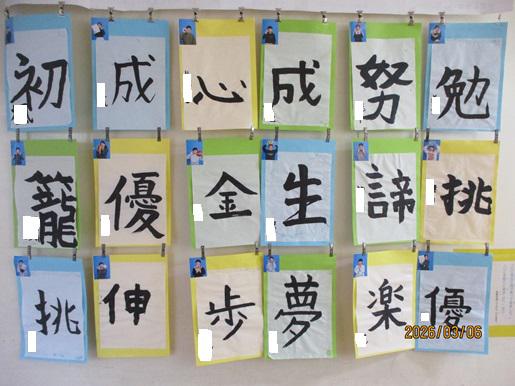 初 成 心 成 努 勉
籠 優 金 生 諦 挑
挑 伸 歩 夢 楽 優
2026/03/06